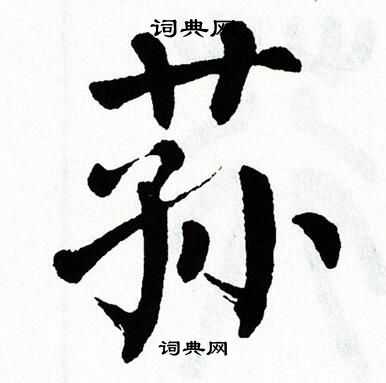 词典网
荪
词典网